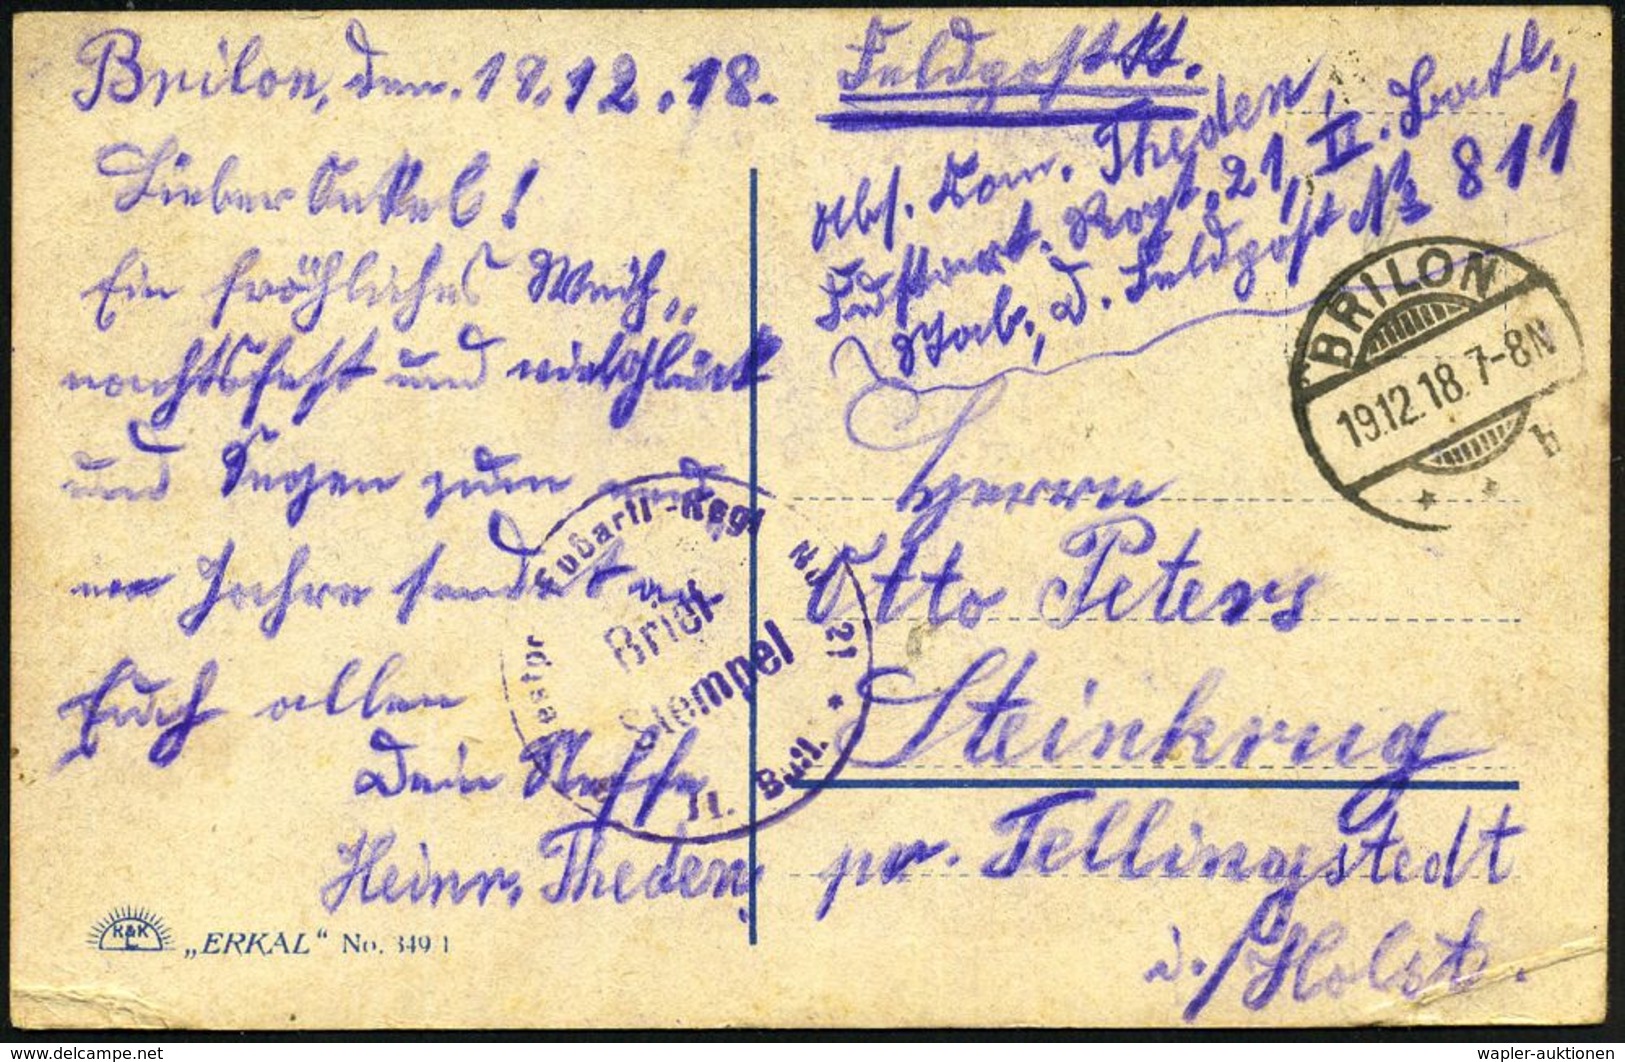 Brilon, den. 18.12.18.
Lieber Onkel!
Ein fröhliches Weih„
nachtsfest und viel Glück
und Segen zum neu
en Jahre sendet an
Euch allen
Dein Neffe
Heinr. Theden,
Feldpostkt.
Abs. Kan. Theden,
Fußart. Regt. 21, II. Batl.,
Stab, D. Feldpost № 811
Herrn
Otto Peters
Steinkrug
pr. Tellingstedt
i./Holst.
BRILON
19.12.18. 7-8N
* * b
Westpr Fußartl-Regt No 21 *
Brief
Stempel
II. Batl.
K&K
L
„ERKAL“ No. 349 1
wapler-auktionen
www.delcampe.net